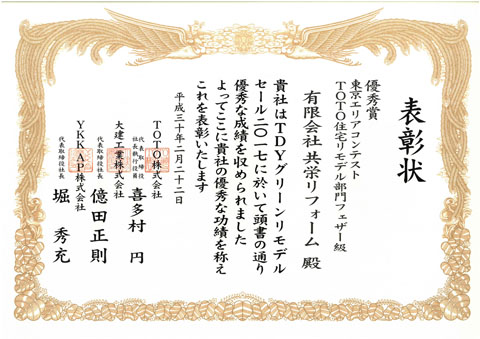 表彰状
優秀賞
東京エリアコンテスト
TOTO住宅リモデル部門フェザー級
有限会社 共栄リフォーム 殿
貴社はTDYグリーンリモデル
セール二〇一七に於いて頭書の通り
優秀な成績を収められました
よってここに貴社の優秀な功績を称え
これを表彰いたします
平成三十年二月二十二日
TOTO株式会社
代表取締役
社長執行役員 喜多村 円
大建工業株式会社
代表取締役社長 億田正則
YKK AP株式会社
代表取締役社長 堀 秀充